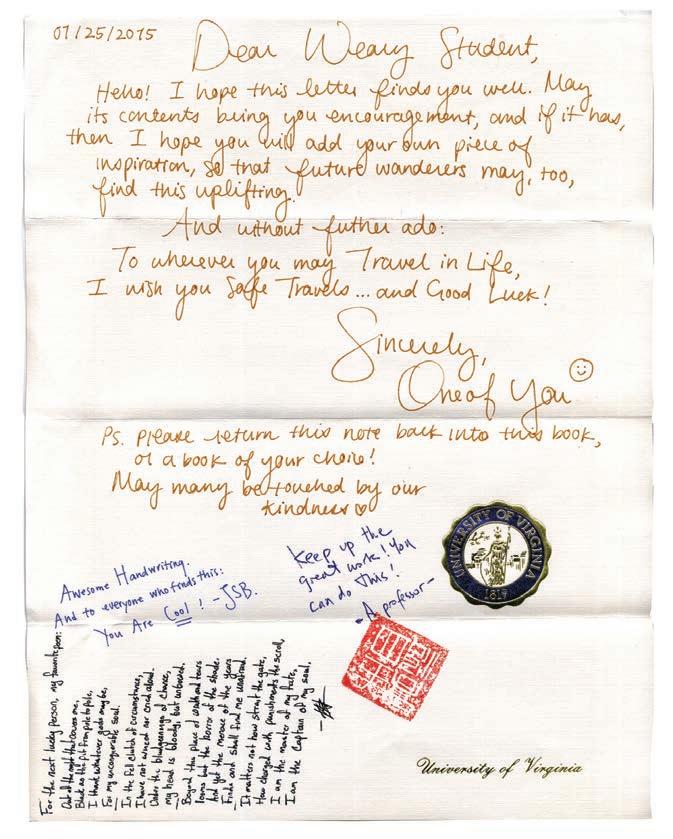 07/25/2015
Dear Weary Student,
Hello! I hope this letter finds you well. May
its contents bring you encouragement, and if it has,
then I hope you will add your own piece of
inspiration, so that future wanderers may, too,
find this uplifting.
And without futher ado:
To wherever you may Travel in Life,
I wish you Safe Travels... and Good Luck!
Sincerely,
One of You
Ps. Please return this note back into this book,
or a book of your choice!
May many be touched by our
kindness
Awesome Handwriting.
And to everyone who finds this:
You Are Cool! -JSB.
Keep up the
great work! You
can do this!
- A professor -
UNIVERSITY OF VIRGINIA
1819
For the next lucky person, my favorite poem:
Out of the night that covers me,
Black as the pit from pole to pole,
I thank whatever gods may be,
For my unconquerable soul.
In the fell clutch of circumstance,
I have not winced nor cried aloud.
Under the bludgeonings of chance,
my head is bloody, but unbowed.
Beyond this place of wrath and tears
looms but the horror of the shade.
And yet the menace of the years
Finds and shall find me unafraid.
It matters not how strait the gate,
How charged with punishments the scroll,
I am the master of my fate,
I am the Captain of my soul.
University of Virginia